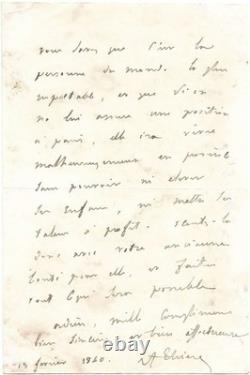 vous savez que c'est la
personne du monde la plus
respectable, et que si on
ne lui assure une position
à paris, elle ira vivre
malheureusement en province
sans pouvoir ni élever
ses enfans, ni mettre ses
talens à profit.
donc avec votre ancienne
bonté pour elle, et faites
tout ce qui sera possible
adieu, mille complimens
bien sincères et bien affectueux
13 février 1840. A Thiers
ebay.com